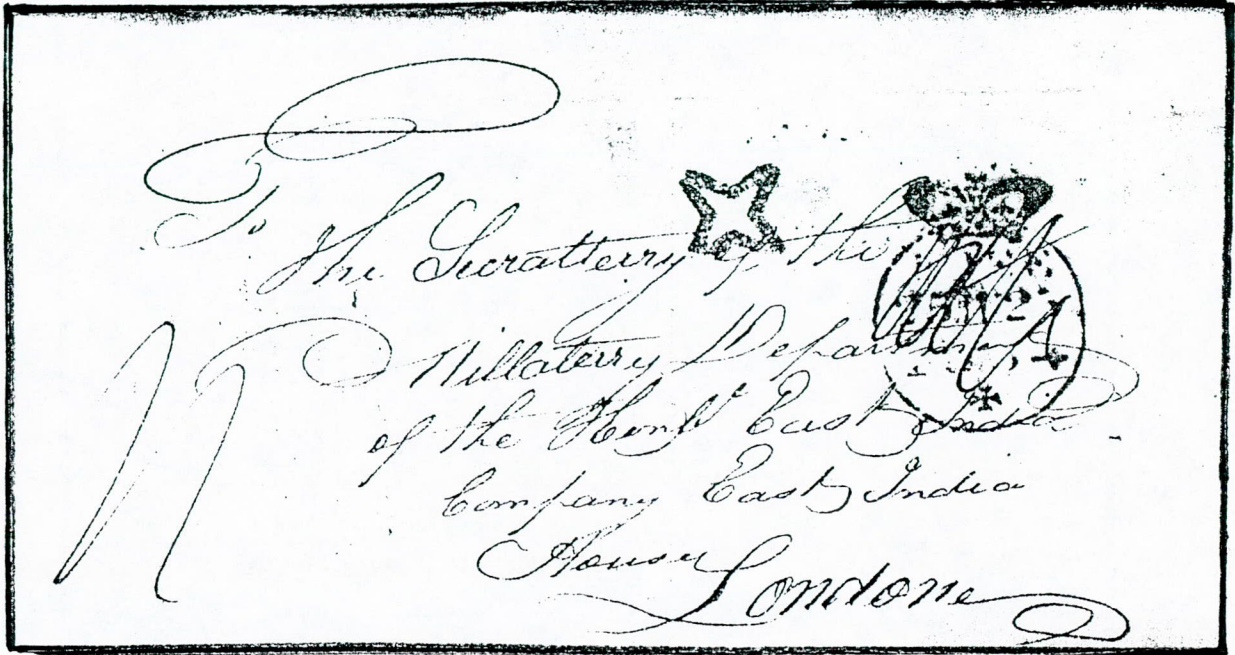 To
The Secratterry of the
Millaterry Department
of the Honbl East India
Company East India
House
Londone